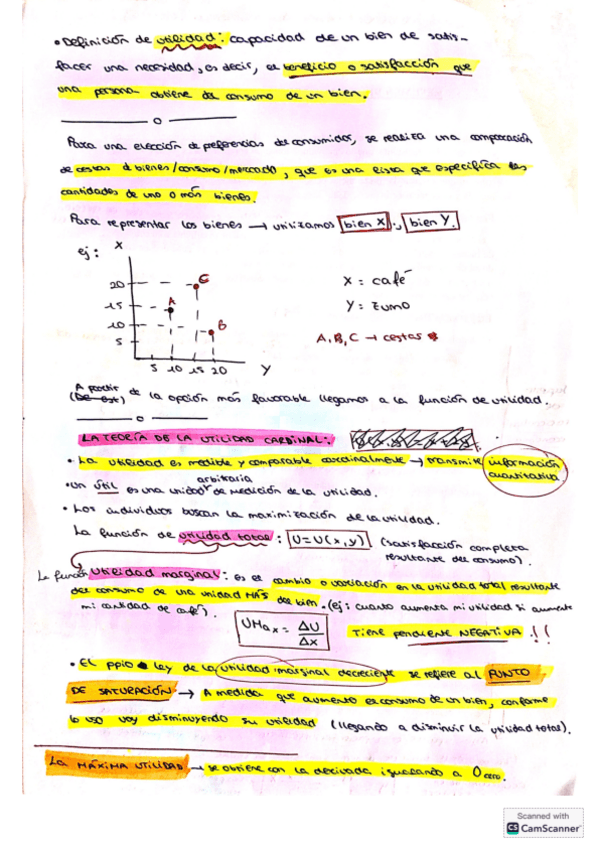 • Definición de utilidad: capacidad de un bien de satis-
facer una necesidad, es decir, el beneficio o satisfacción que
una persona obtiene del consumo de un bien.
o
Para una elección de preferencias del consumidor, se realiza una comparación
de cestas d bienes/consumo/mercado, que es una lista que especifica las
cantidades de uno o más bienes.
Para representar los bienes → utilizamos bien X., bien Y.
ej: X
20 C
15 A
10 B
5
5 10 15 20 Y
X = café
Y = Zumo
A, B, C → cestas
A partir
de la opción más favorable llegamos a la función de utilidad.
o
LA TEORÍA DE LA UTILIDAD CARDINAL:
• La utilidad es medible y comparable cardinalmente → transmite información
cuantitativa.
arbitraria
• Un útil es una unidad de medición de la utilidad.
• Los individuos buscan la maximización de la utilidad.
La función de utilidad total: U=U(x,y) (satisfacción completa
resultante del consumo).
La función utilidad marginal: es el cambio o variación en la utilidad total resultante
del consumo de una unidad MÁS del bien. (ej: cuanto aumenta mi utilidad si aumente
mi cantidad de café).
UMax = ΔU
Δx
TIENE PENDIENTE NEGATIVA !!
• El ppio ley de la utilidad marginal decreciente se refiere al PUNTO
DE SATURACIÓN → A medida que aumento el consumo de un bien, conforme
lo uso voy disminuyendo su utilidad (llegando a disminuir la utilidad total).
LA MÁXIMA UTILIDAD → se obtiene con la derivada igualando a 0 cero.
Scanned with
CS CamScanner